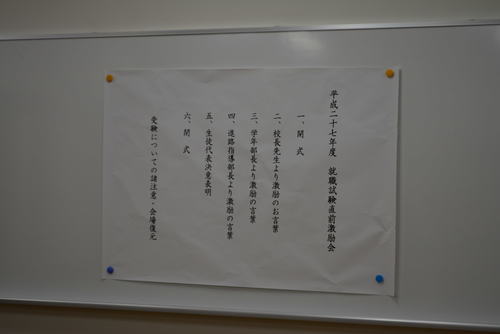 平成二十七年度　就職試験直前激励会
一、開　式
二、校長先生より激励のお言葉
三、学年部長より激励の言葉
四、進路指導部長より激励の言葉
五、生徒代表決意表明
六、閉　式
受験についての諸注意・会場復元